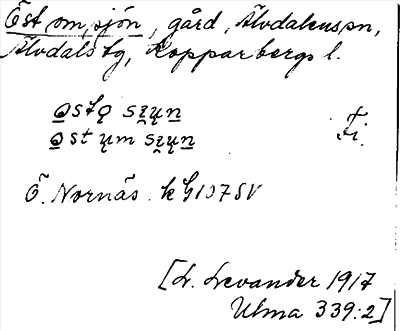 Öst om sjön, gård, Älvdalens sn,
Älvdals tg, Kopparbergs l.
ǫstǫ sz̨ųn
ǫst ųm sz̨ųn Fi.
Ö. Nornäs. k G107 SV
[L. Levander 1917
Ulma 339:2]